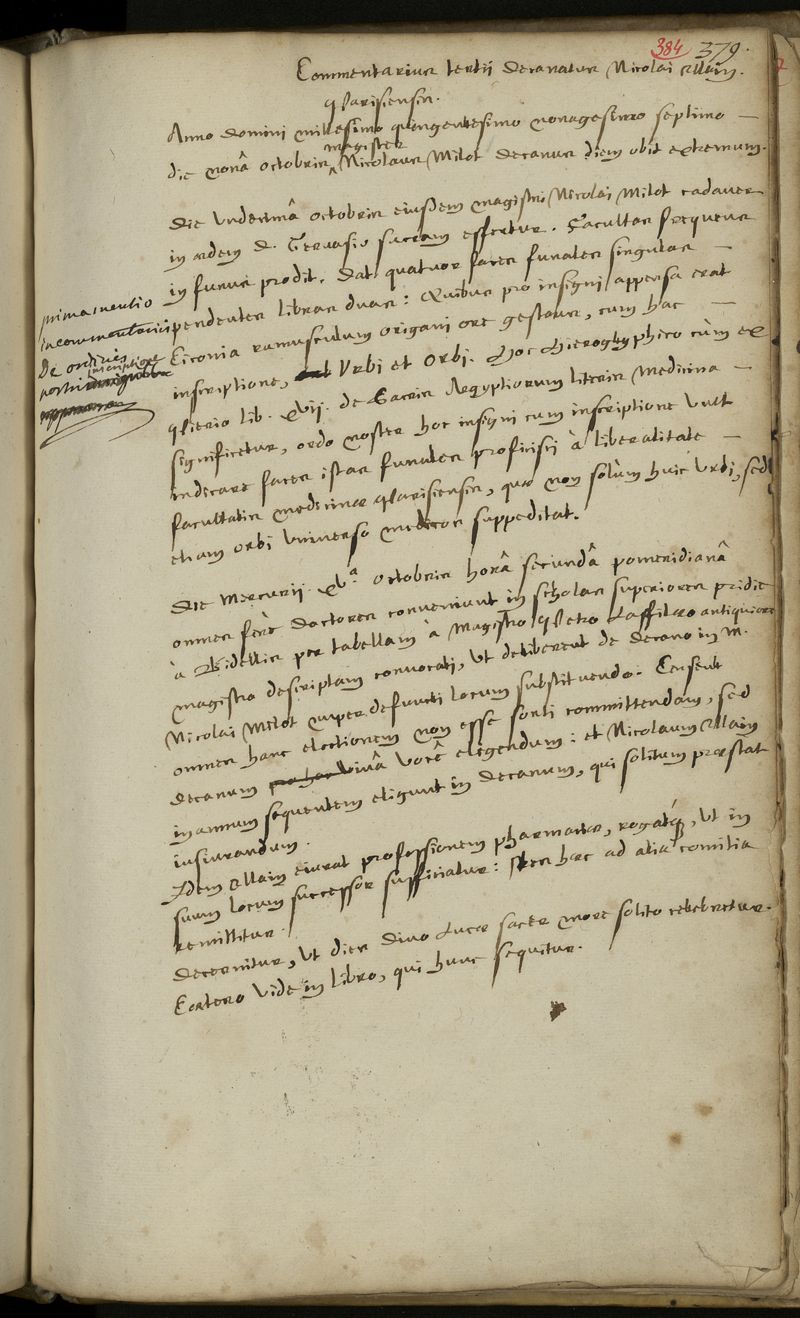 384 379.
Commentarius tertii decanatus Nicolai Ellain
Parisiensis.
Anno domini millesimo quingentesimo nonagesimo septimo —
magister
die nonâ octobris Nicolaus Milot decanus diem obit extremum.
Die undecimâ octobris eiusdem magistri Nicolai Milot cadaver
in ædem D. Gervasio sacram effertur. Facultas frequens
in funus prodit. Dat quatuor faces funales singulas —
pendentes libras duas: Quibus pro insigni appensa erat
Ciconia ramusculum origani ore gestans, cum hac —
inscriptione, Urbi et Orbi. Hoc Hieroglyphico cùm ex
Pierio lib. XVij. de Sacris Ægyptiorum literis Medicina —
significetur, ordo noster hoc insigni cum inscriptione vult
indicare faces istas funales proficisci à liberalitate —
facultatis medicinæ Parisiensis, quæ non solùm huic Urbi, sed
etiam orbi universo medicos suppeditat.
prima mentio
in commentariis
de ordinis
nostri
inscriptione
Die Mercurij XVa octobris horâ secundâ pomeridianâ
omnes ferè doctores conveniunt in scholas superiores pridie
à Bidellis per tabellam à Magistro Petro Laffilé antiquiore
magistro descriptam convocati, ut deliberent de decano in M.
Nicolai Milot nuper defuncti locum substituendo. Censent
omnes hanc electionem non esse sorti committendam, sed
decanum vivâ você eligendum: et Nicolaum Ellain
in annum sequentem eligunt in decanum, qui solitum præstat
iusiurandum.
Idem Ellain eiurat professionem pharmaciæ, rogatq;, ut in
suum locum successor sufficiatur: res hæc ad alia comitia
remittitur.
Decernitur, ut dies divo Lucæ sacer more solito celebretur.
Cætera vide in libro, qui hunc sequitur.